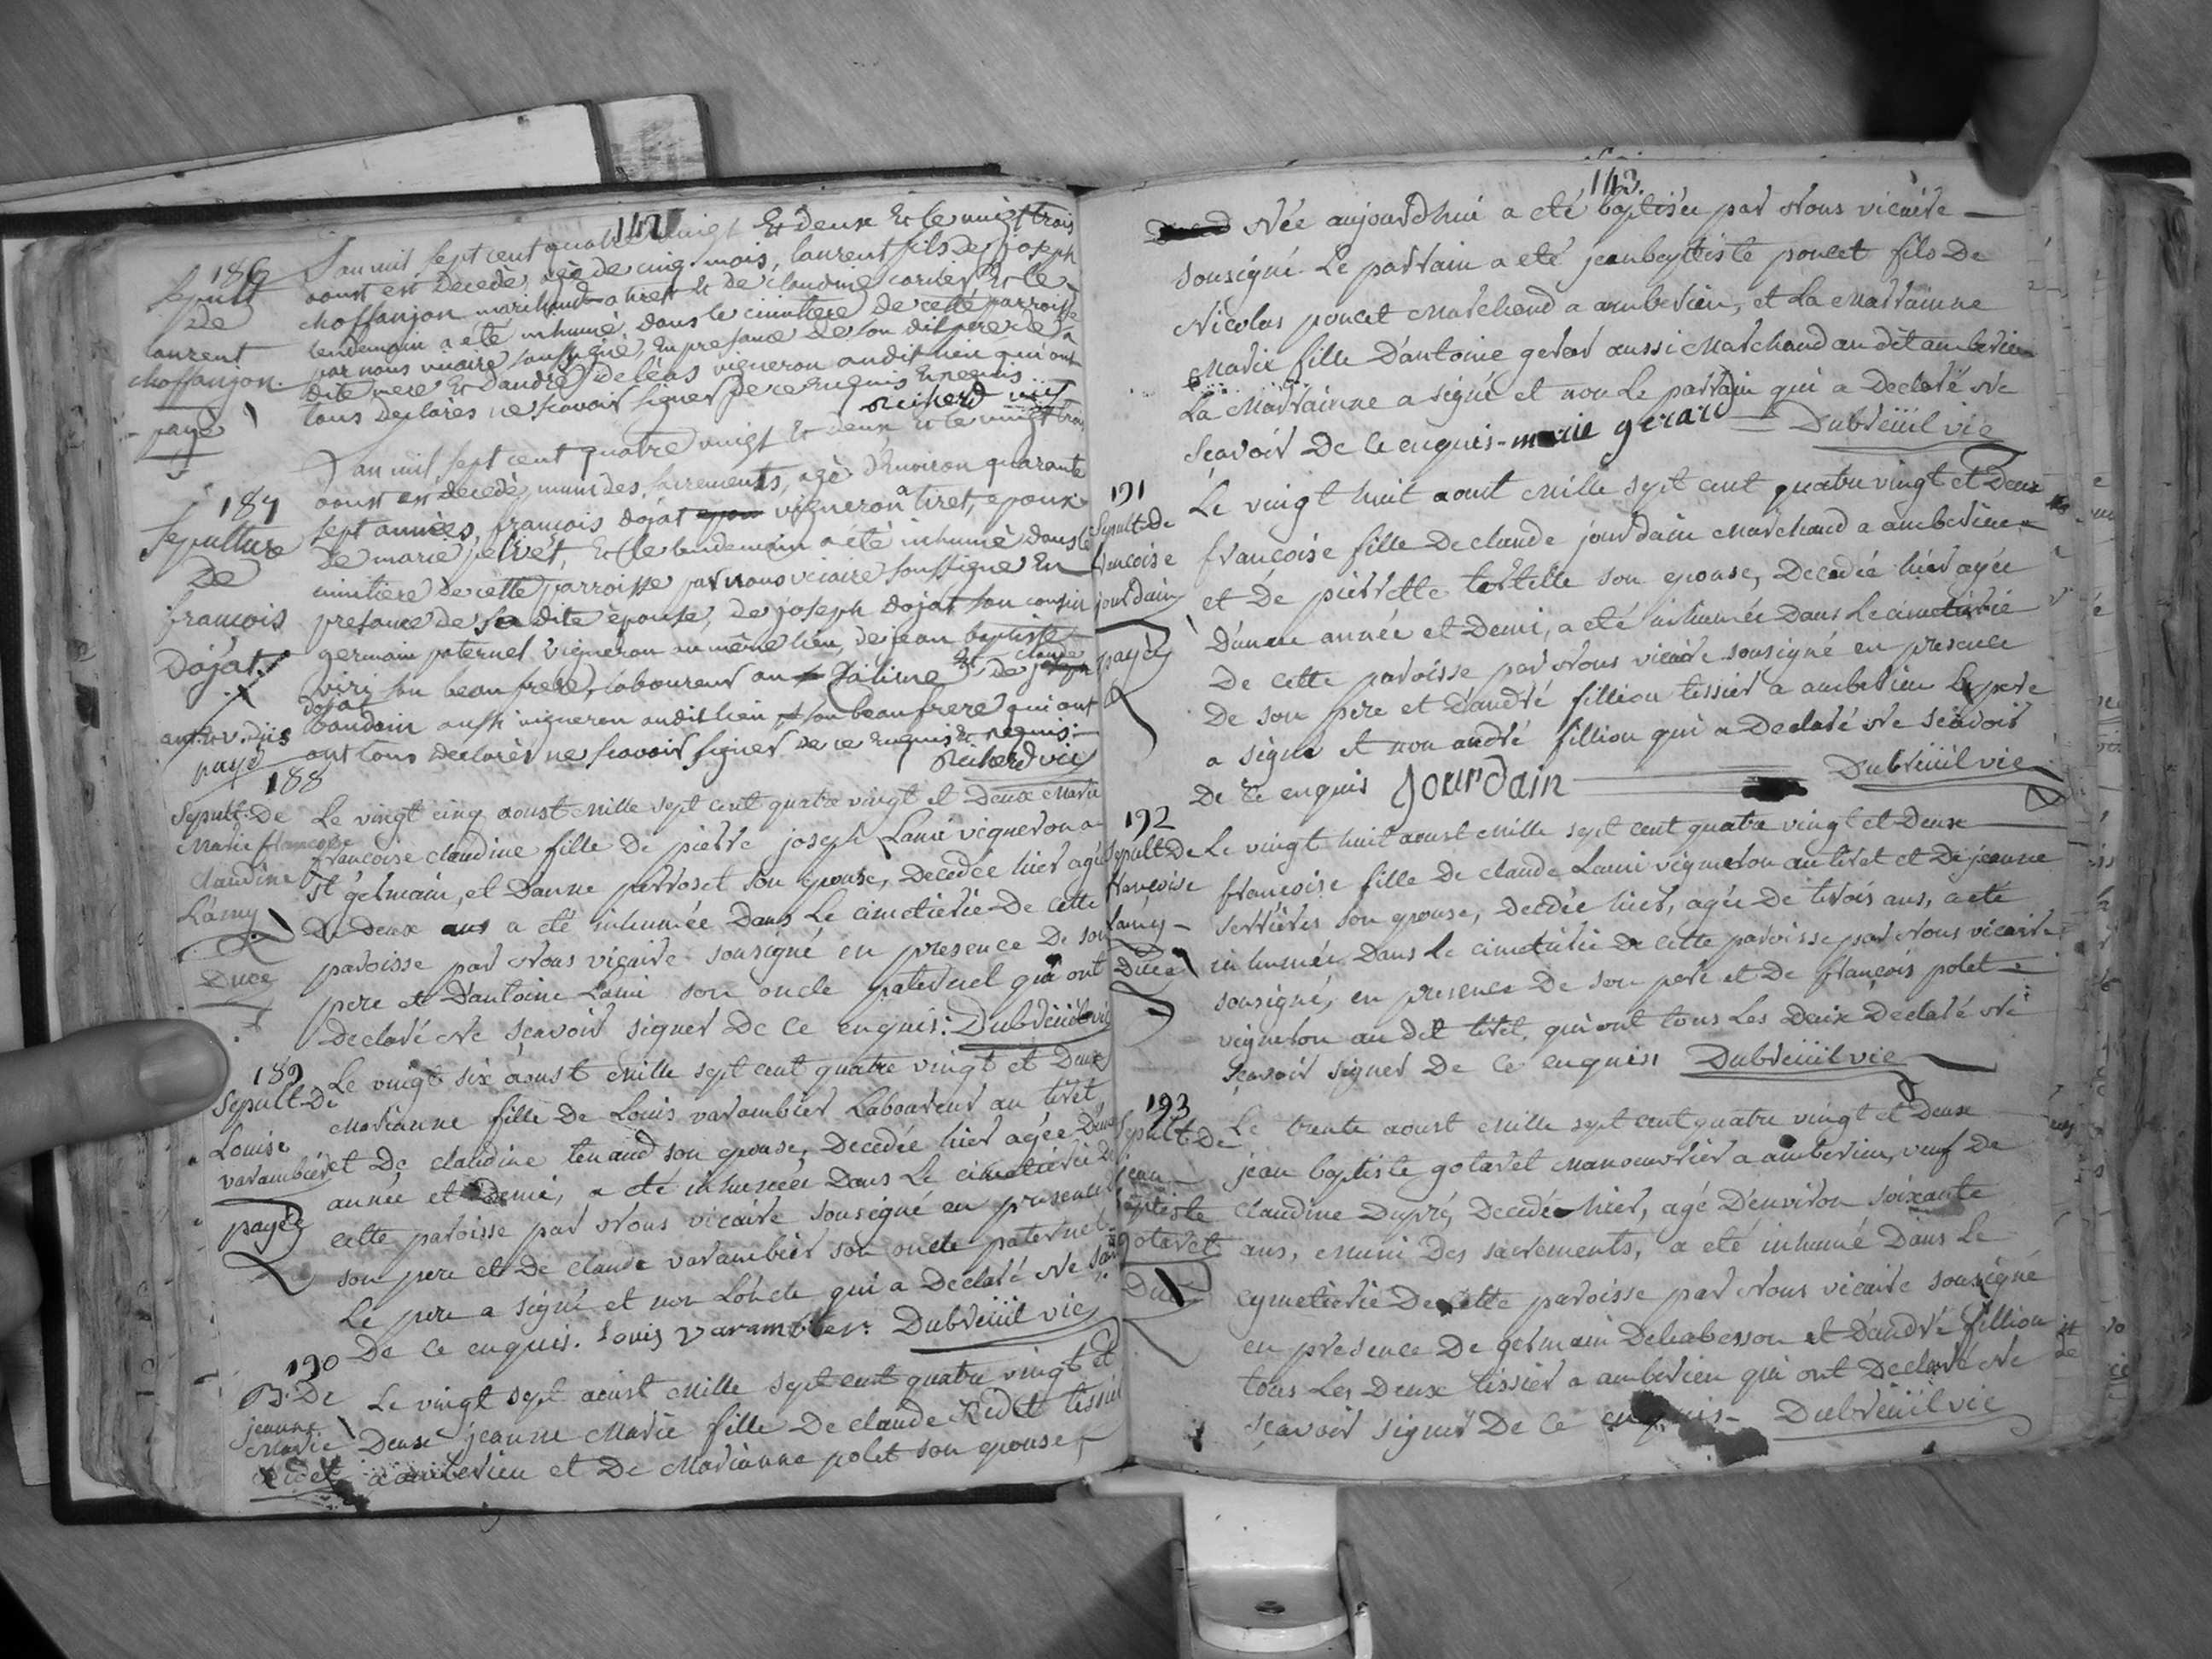 142
186
Sepult
de
laurent
choffanjon
payé
L'an mil sept cent quatre vingt et deux et le vingt trois
aoust est decedé, agé de cinq mois, laurent fils de joseph
choffanjon marchand a tiret et de claudine cornier et le
lendemain a été inhumé dans le cimitiere de cette parroisse
par nous vicaire soussigné, en presance de son dit pere de sa
dite mere et d'andré vigneron audit lieu qui ont
tous declarés ne scavoir signer de ce enquis et requis
Richerd vic
187
Sepulture
De
françois
Dojat
payé
L'an mil sept cent quatre vingt et deux et le vingt trois
aoust est decedé, muni des sacrements, agé d'environ quarante
sept années, françois dojat vigneron a tiret, epoux
de marie pelivét, et le lendemain a été inhumé dans le
cimitiere de cette parroisse par nous vicaire soussigné en
presance de sa dite épouse, de joseph dojat son cousin
germain paternel, vigneron au même lieu, de jean baptiste
viri son beau frere, laboureur au et de claude
dojat
baudoin aussi vigneron audit lieu son beau frere qui ont
ont tous declarés ne scavoir signer de ce enquis et requis
Richerd vic
188
Sepult. De
Marie francoise
Claudine
Lámy
Duoe
Le vingt cinq aoust mille sept cent quatre vingt et Deux Marie
francoise claudine fille de pierre joseph Lami vigneron a
St germain, et D'anne perroset son epouse, Decedée hier agée
De deux ans a eté inhumée Dans Le cimetierie De cette
paroisse par Nous vicaire sousigné en presence De son
pere et D'antoine Lami son oncle paternel qui ont
Declaré Ne sçavoir signer De ce enquis: Dubreüil vic
189
Sepult. De
Louise
varambier
payée
Le vingt six aoust mille sept cent quatre vingt et Deux
Marianne fille De Louis varambier Laboureur au tiret,
et De claudine tenand son epouse, Decedée hier agée D'une
année et Demi, a eté inhumée Dans Le cimetierie De
cette paroisse par Nous vicaire sousigné en presence
son pere et De claude varambier son oncle paternel
Le pere a signé et non L'oncle qui a Declaré Ne
De ce enquis. Louis varambier: Dubreüil vic
190
B. De
jeanne
Marie
Ridet
Le vingt sept aoust mille sept cent quatre vingt et
Deux jeanne Marie fille De claude Ridet tissier
a amberieu et De Marianne polet son epouse,
143.
Née aujourdhui a eté baptisée par Nous vicaire
sousigné Le parrain a eté jean baptiste poncet fils De
Nicolas poncet Marchand a amberieu, et La Marrainne
Marie fille D'antoine gerar aussi Marchand au dit amberieu
La Marrainne a signé et non Le parrain qui a Declaré Ne
sçavoir De ce enquis - marie gerard Dubreüil vic
191
Sepult. De
francoise
jourdain
payée
Le vingt huit aoust mille sept cent quatre vingt et Deux
françoise fille De claude jourdain Marchand a amberieu
et De pierrette tortille son epouse, Decedée hier agée
D'une année et Demi, a eté inhumée Dans Le cimetierie
De cette paroisse par Nous vicaire sousigné en presence
De son pere et D'andré fillion tissier a amberieu Le pere
a signé et non andré fillion qui a Declaré Ne scavoir
De ce enquis Jourdain Dubreüil vic
192
Sepult. De
françoise
Lamy
Duee
Le vingt huit aoust mille sept cent quatre vingt et Deux
françoise fille De claude Lami vigneron au tiret et De jeanne
serrieres son epouse, Decedée hier, agée De trois ans, a eté
inhumée Dans Le cimetierie De cette paroisse par Nous vicaire
sousigné, en presence De son pere et De françois polet
vigneron au dit tiret, qui ont tous Les Deux Declaré Ne
sçavoir signer De ce enquis Dubreüil vic
193
Sepult. De
jean
baptiste
gotaret
Le trente aoust mille sept cent quatre vingt et Deux
jean baptiste gotaret Manouvrier a amberieu, veuf De
claudine Dupré, Decedé hier, agé D'environ soixante
ans, Muni Des sacrements, a eté inhumé Dans Le
cymetierie De cette paroisse par Nous vicaire sousigné
en presence De germain Delabesson et D'andré fillion
tous Les Deux tissier a amberieu qui ont Declaré Ne
sçavoir signer De ce enquis - Dubreüil vic